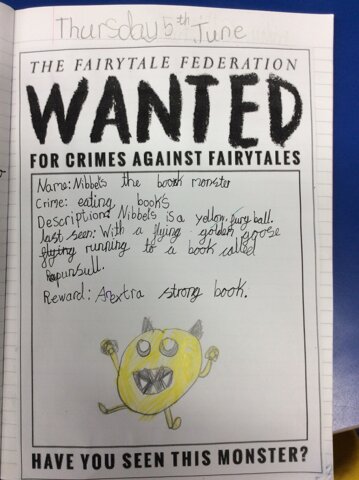 Thursday 5th June
THE FAIRYTALE FEDERATION
WANTED
FOR CRIMES AGAINST FAIRYTALES
Name: Nibbels the book monster
Crime: eating books
Description: Nibbels is a yellow, furry ball.
last seen: With a flying golden goose
flying running to a book called
Rapunsull.
Reward: An extra strong book.
HAVE YOU SEEN THIS MONSTER?